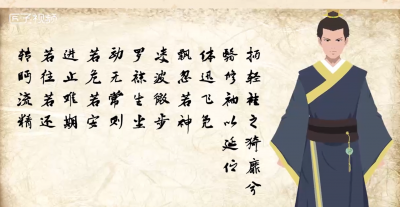 扬轻袿之猗靡兮
翳修袖以延伫
体迅飞凫
飘忽若神
凌波微步
罗袜生尘
动无常则
若危若安
进止难期
若往若还
转眄流精